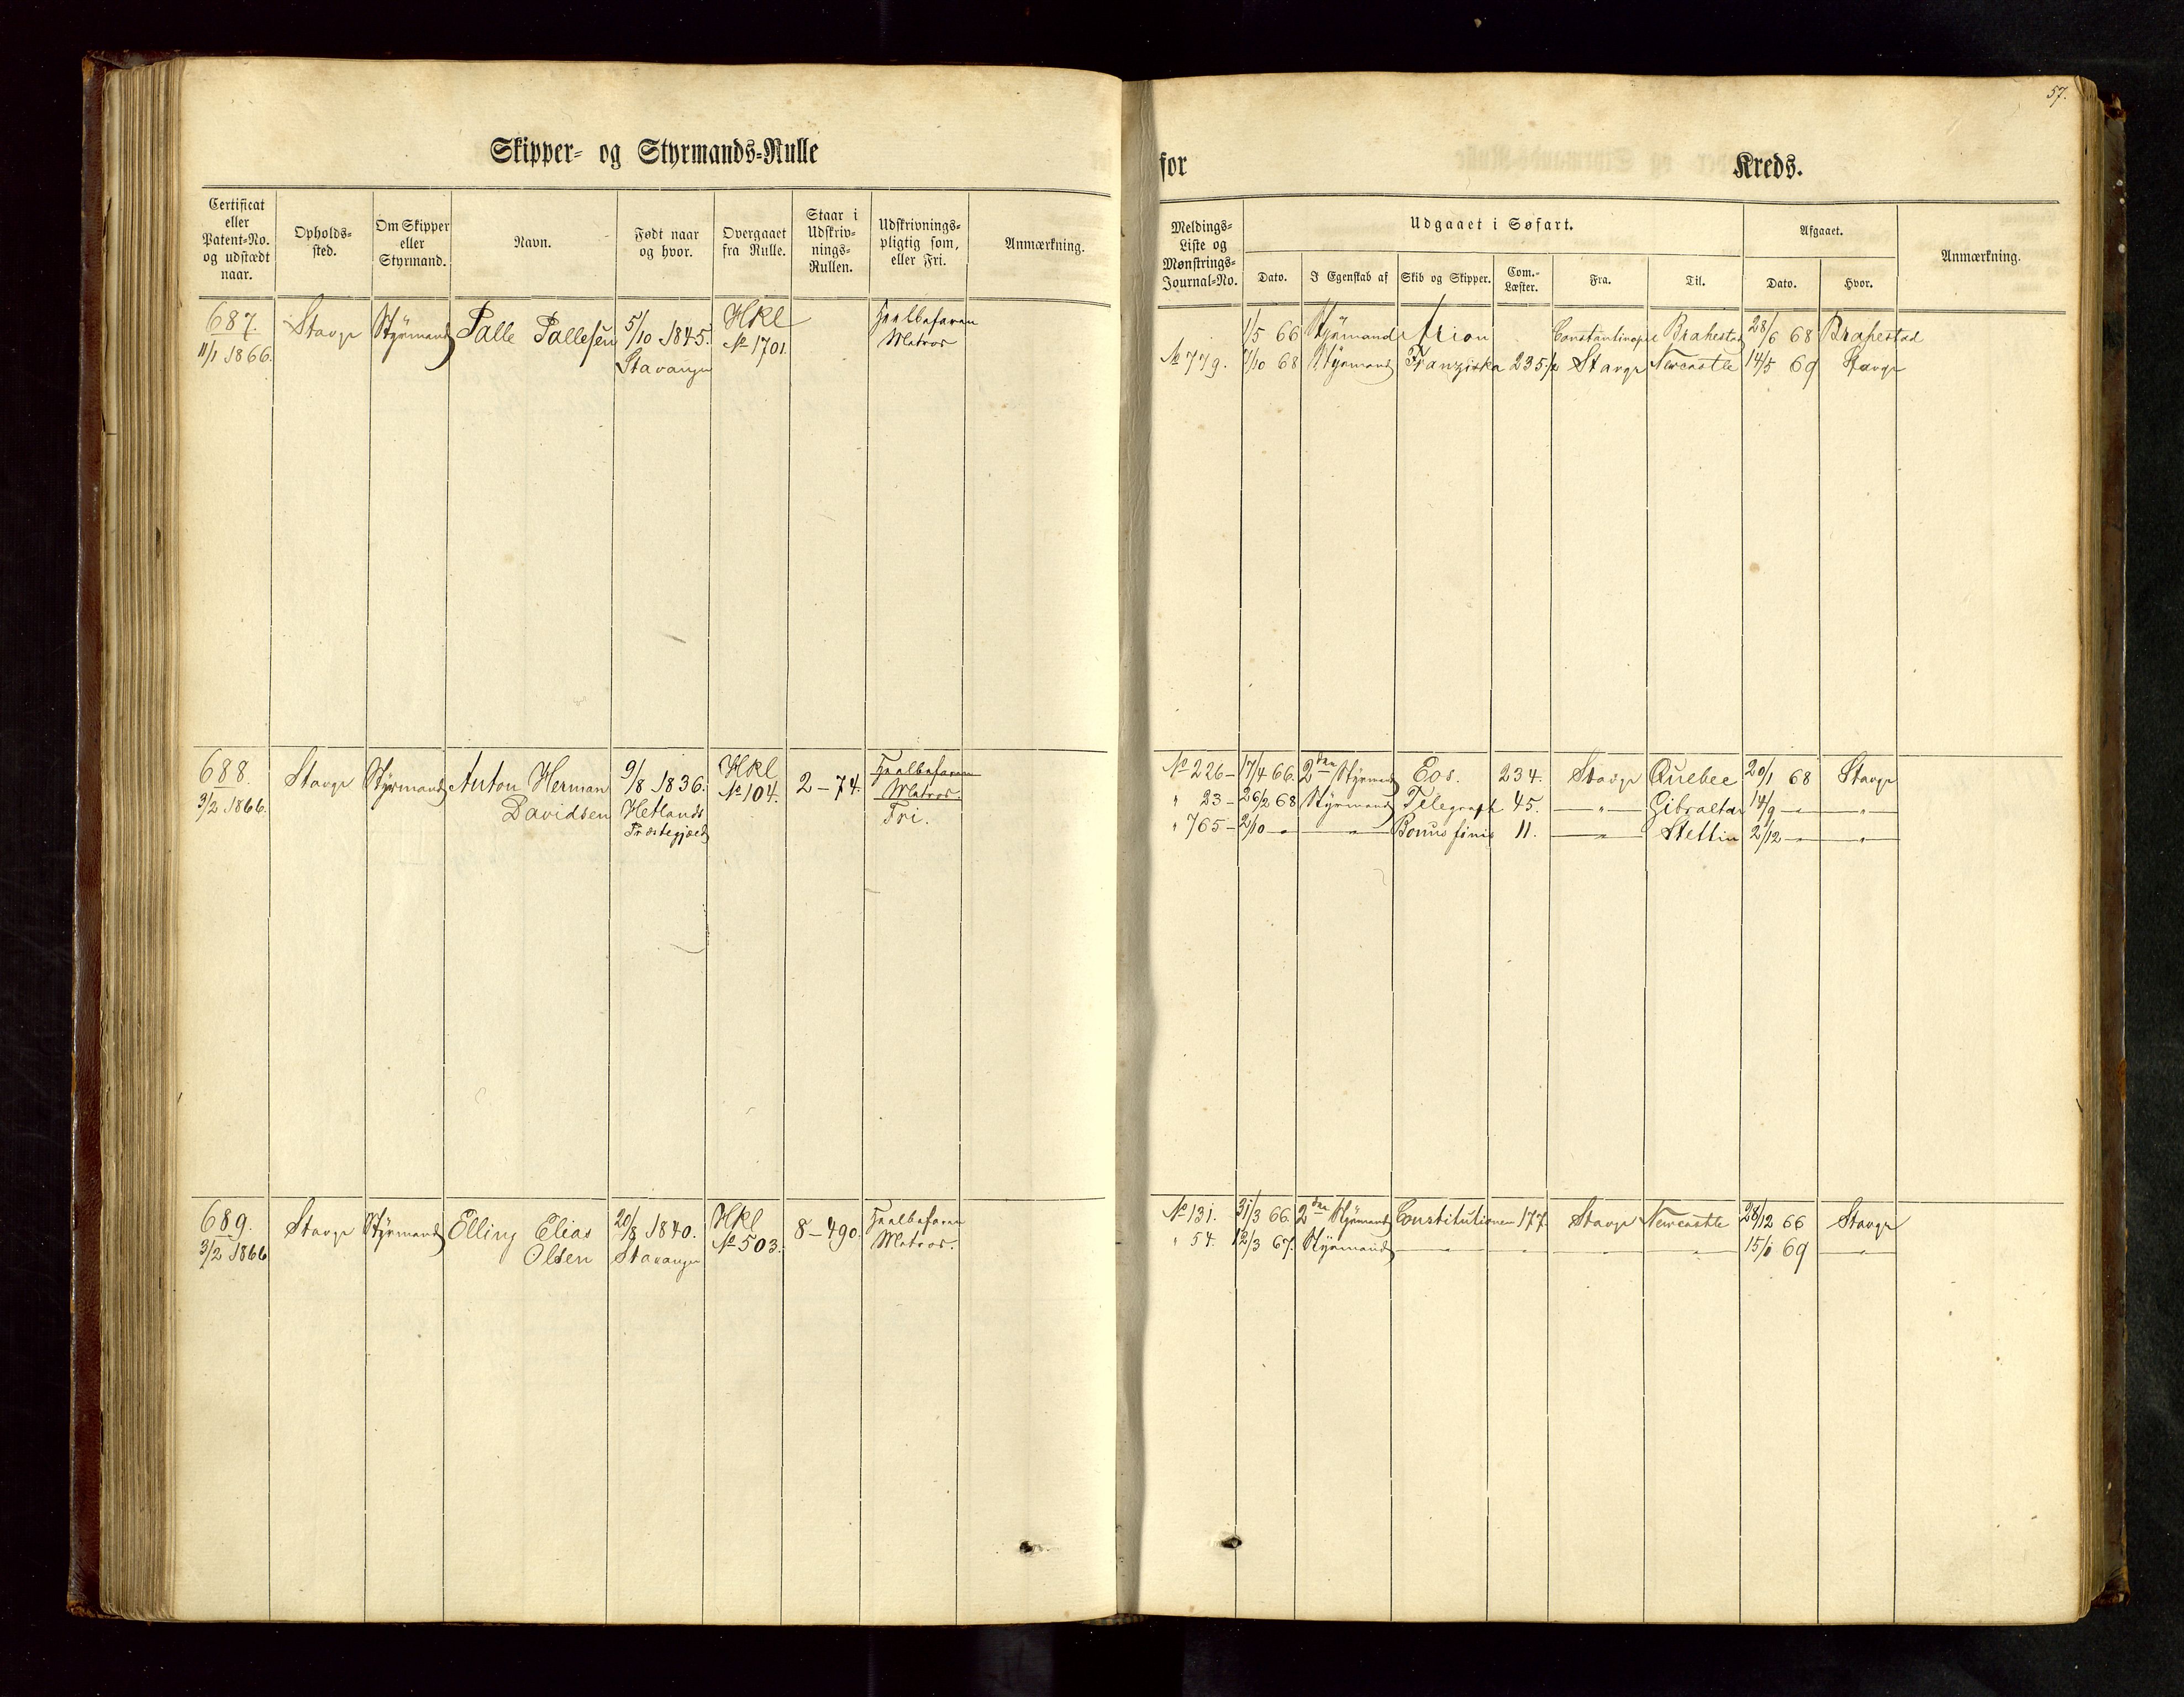 57.
Skipper- og Styrmands-Rulle
for Kreds.
Certificat eller Patent-No. og udstædt naar.
Opholds- sted.
Om Skipper eller Styrmand.
Navn.
Født naar og hvor.
Overgaaet fra Rulle.
Staar i Udskriv- nings- Rullen.
Udskrivnings- pligtig som, eller Fri.
Anmærkning.
Meldings- Liste og Mønstrings- Journal-No.
Udgaaet i Søfart.
Dato.
I Egenskab af
Skib og Skipper.
Com.- Læster.
Fra.
Til.
Afgaaet.
Dato.
Hvor.
Anmærkning.
687. Stavgr Styrmand Palle Pallesen 5/10 1845. Hkl Heelbefaren
11/1 1866. Stavanger No 1701. Matros
1/5 66 Styrmand Arion Constantinopel Brahestad 28/6 68 Brahestad
No 779. 7/10 68 Styrmand Franziska 235 1/2 Stavgr Newcastle 14/5 69 Stavgr
688. Stavgr Styrmand Anton Herman 9/8 1836. Hkl 2-74. Heelbefaren
3/2 1866. Davidsen Hetlands No 104. Matros.
Præstegjæld Fri.
No 226- 17/4 66. 2den Styrmand Eos. 234. Stavgr Quebec 20/1 68 Stavgr
" 23- 26/2 68 Styrmand Telegraph 45. -"- Gibraltar 14/9 -"- -"-
" 765- 2/10 -"- -"- Bonus finis 11. -"- Stettin 2/12 -"- -"-
689. Stavgr Styrmand Elling Elias 20/8 1840. Hkl 8-490. Heelbefaren
3/2 1866 Olsen Stavanger No 503. Matros.
No 131. 31/3 66. 2den Styrmand Constitutionen 177. Stavgr Newcastle 28/12 66 Stavgr
" 54. 12/3 67. Styrmand -"- -"- -"- -"- 15/1 69 -"-